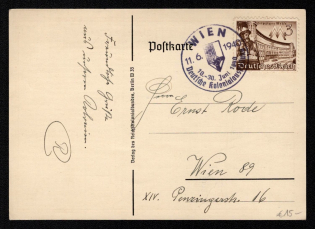 Postkarte
WIEN
11.6. 1940
10.-30. Juni 1940
Deutsche Kolonialausstellung
3
Deutsches Reich
Freundliche Grüße
aus unseren Kolonien.
R
Verlag des Reichskolonialbundes, Berlin W 35
Herrn Ernst Rode
Wien 89
XIV. Penzingerstr. 16
15-